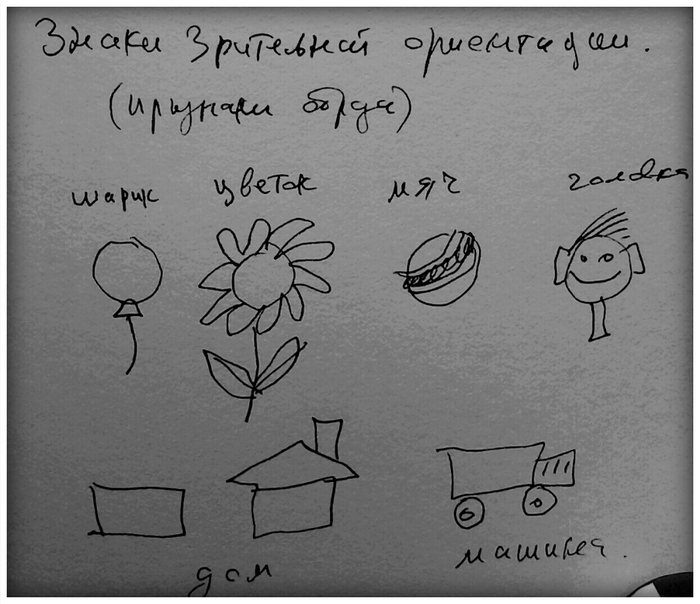 Знаки Зрительной ориентации.
шарик цветок мяч головка
дом
машинка.